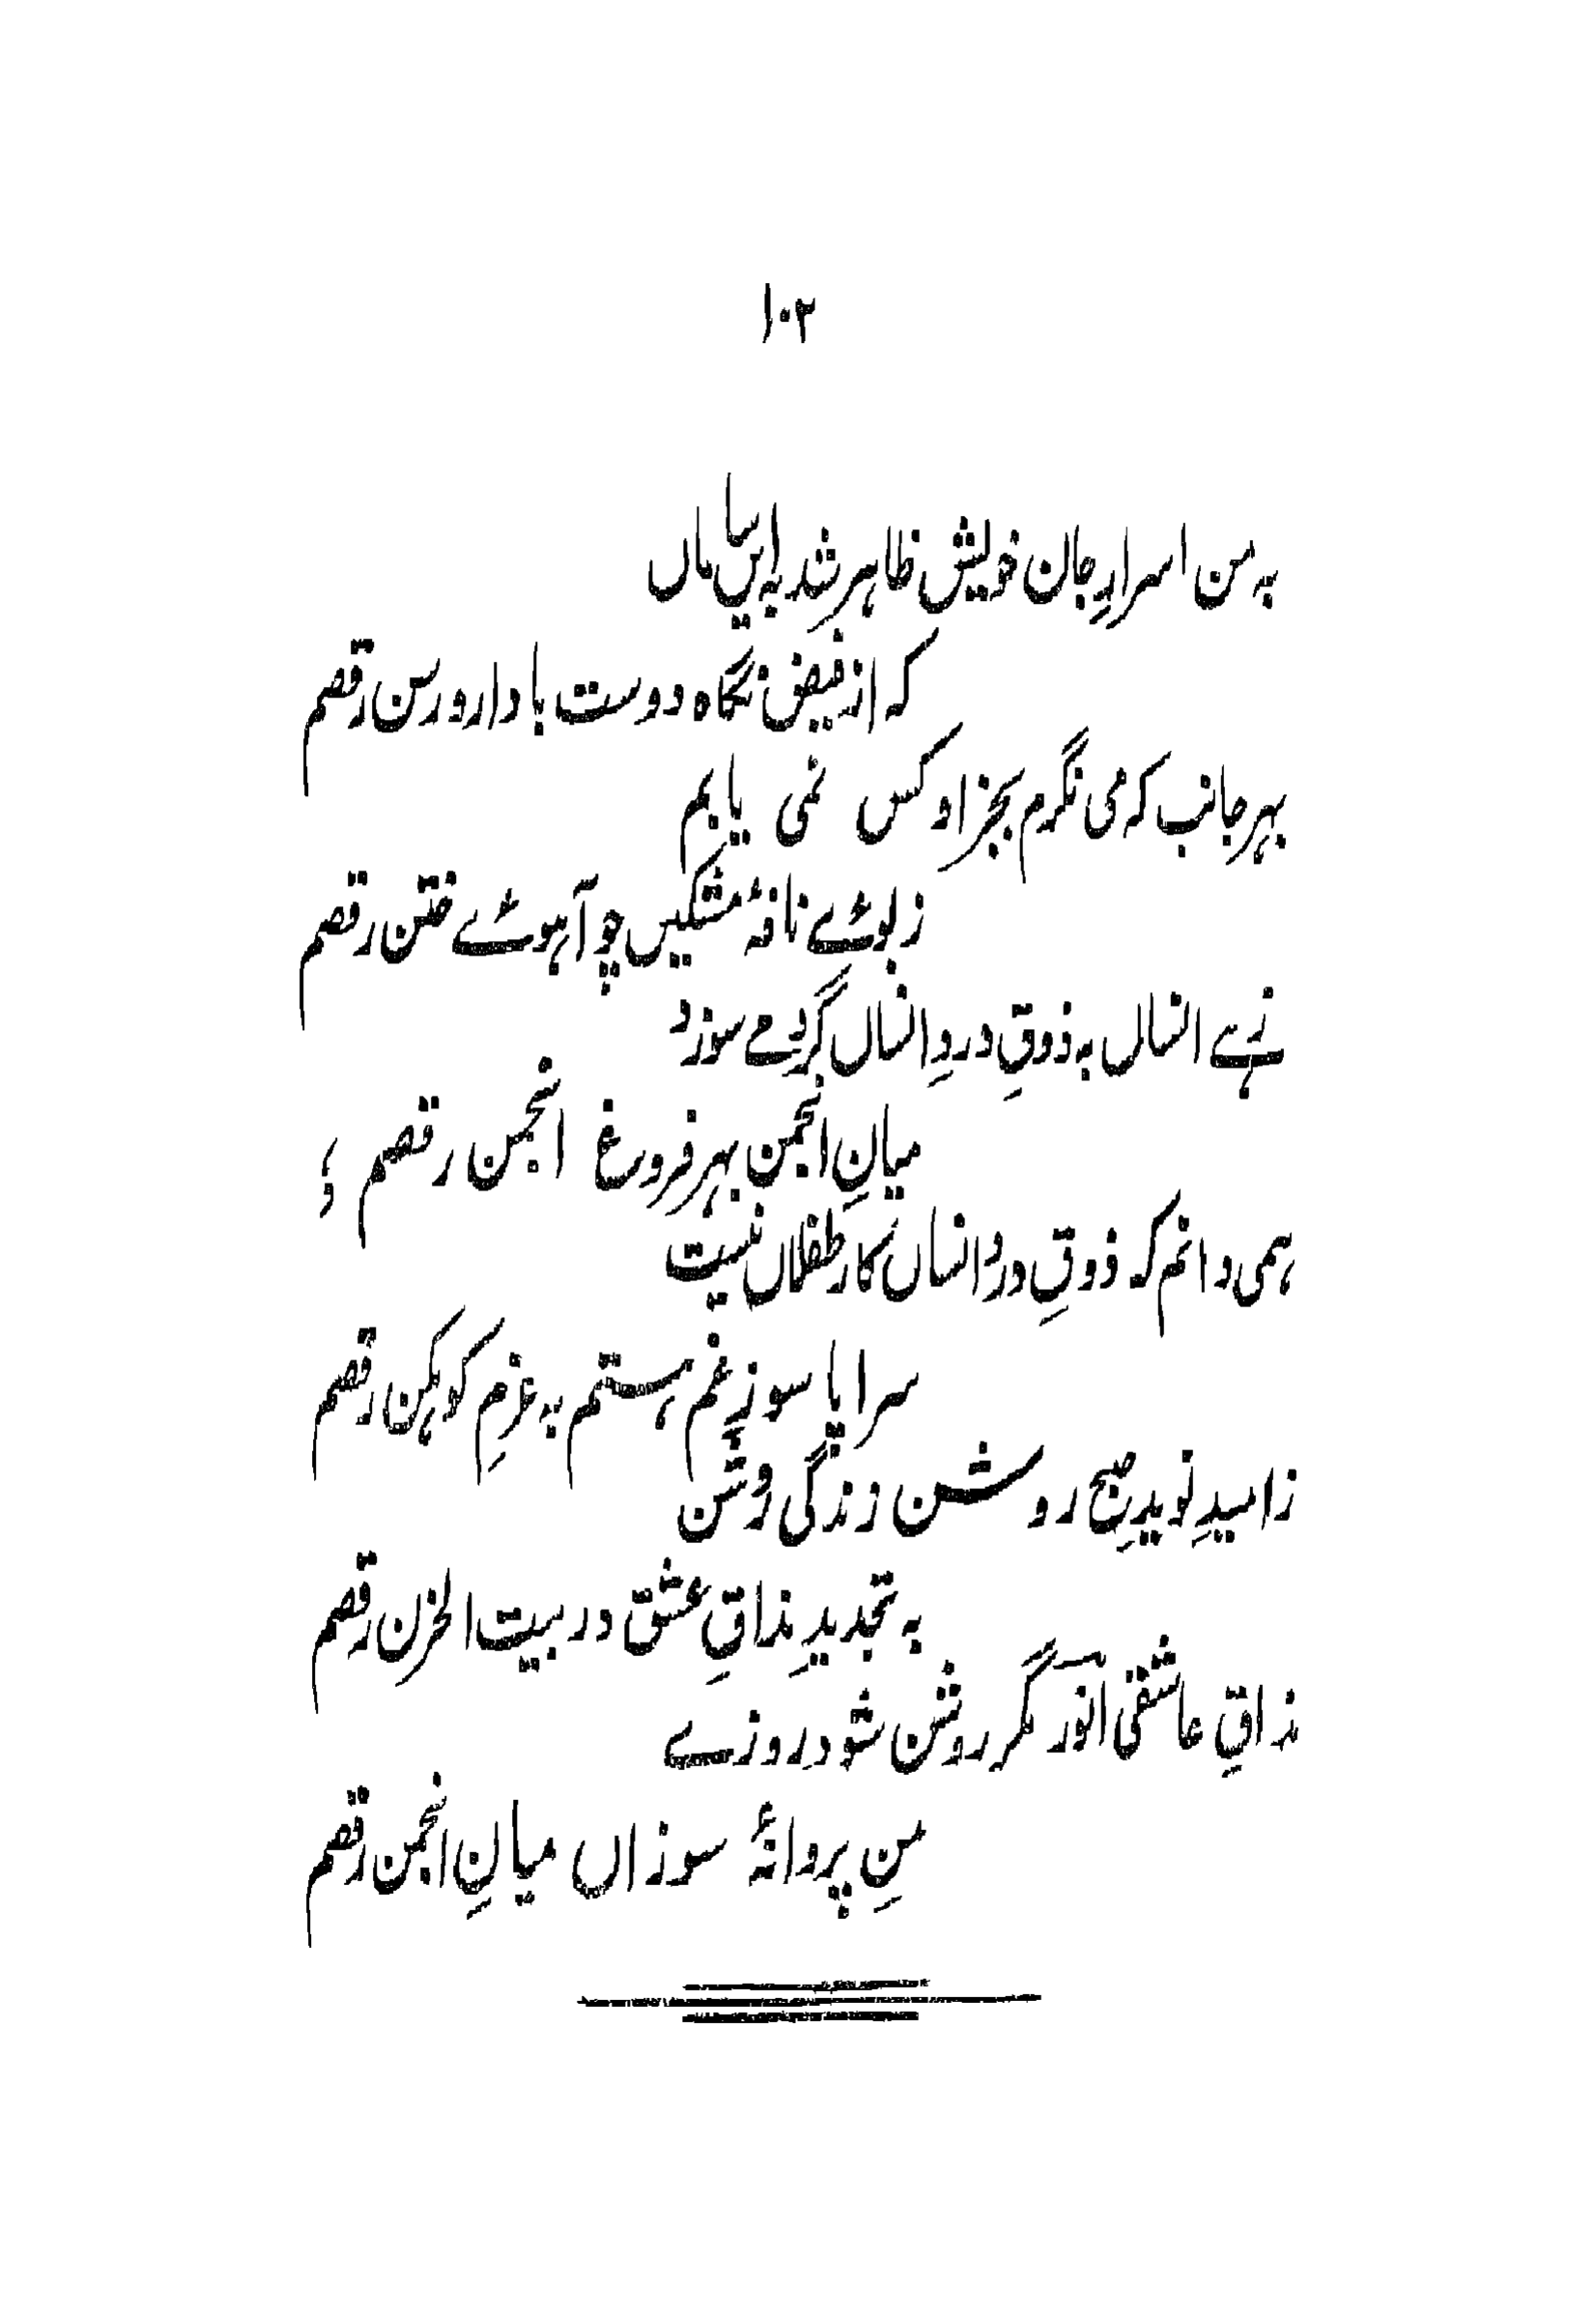 ۱۰۲
بہ من اسرارِ جان خویش ظاہر شد بہ ایں پیماں
کہ از فیض نگاہ دوست با دار و رسن رقصم
بہر جانب کہ می نگرم بجز او کس نمی یابم
ز بوئے نافۂ مشکیں چو آہوئے ختن رقصم
زہے انساں بہ ذوقِ دردِ انساں گر دمے سوزد
میانِ انجمن بہر فروغ انجمن رقصم ؛
ہمی دانم کہ ذوقِ دردِ انساں کار طفلاں نیست
سراپا سوزِ غم ہستم بہ عزمِ کوہکن رقصم
ز امیدِ نویدِ صبح روشن زندگی روشن
بہ تجدیدِ مذاقِ عشق در بیت الحزن رقصم
مذاقِ عاشقی انورؔ مگر روشن شود روزے
منِ پروانۂ سوزاں میانِ انجمن رقصم